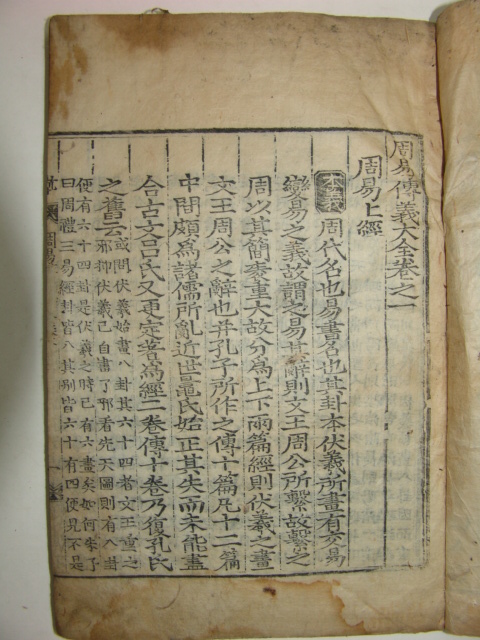 周易傳義大全卷之一
周易上經
本義 周代名也易書名也其卦本伏羲所畫有交易
變易之義故謂之易其辭則文王周公所繫故繫之
周以其簡袠重大故分爲上下兩篇經則伏羲之畫
文王周公之辭也并孔子所作之傳十篇凡十二篇
中間頗爲諸儒所亂近世鼂氏始正其失而未能盡
合古文呂氏又更定著爲經二卷傳十卷乃復孔氏
之舊云 或問伏羲始畫八卦其六十四者文王重之
邪抑伏羲已自畫了邪看先天圖則有八卦
便有六十四卦是伏羲之時已有六畫矣如何
曰周禮三易經卦皆八其別皆六十有四便見不是
周易